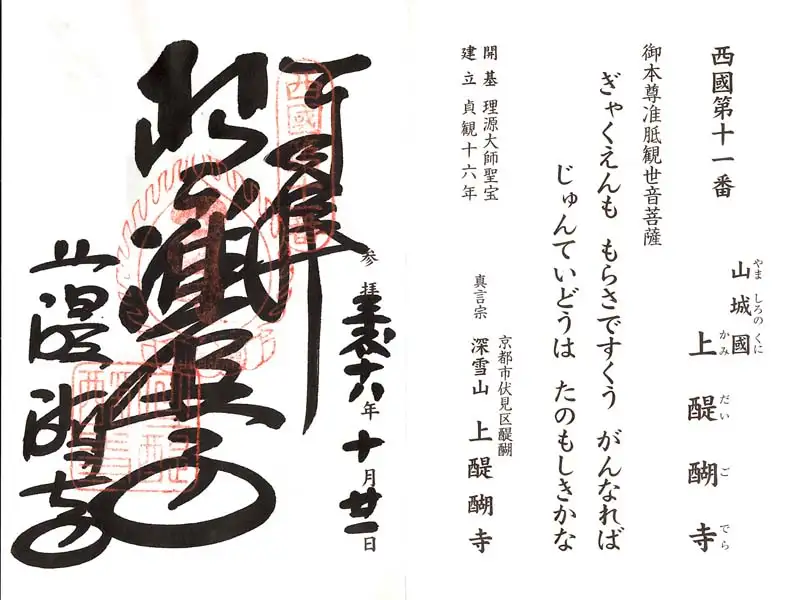 西國第十一番
山城國
やましろのくに
上醍醐寺
かみだいごでら
御本尊准胝観世音菩薩
ぎゃくえんも もらさですくう がんなれば
じゅんていどうは たのもしきかな
開基 理源大師聖宝
建立 貞観十六年
京都市伏見区醍醐
真言宗 深雪山 上醍醐寺
参拝 平成十八年十月廿一日
上醍醐寺